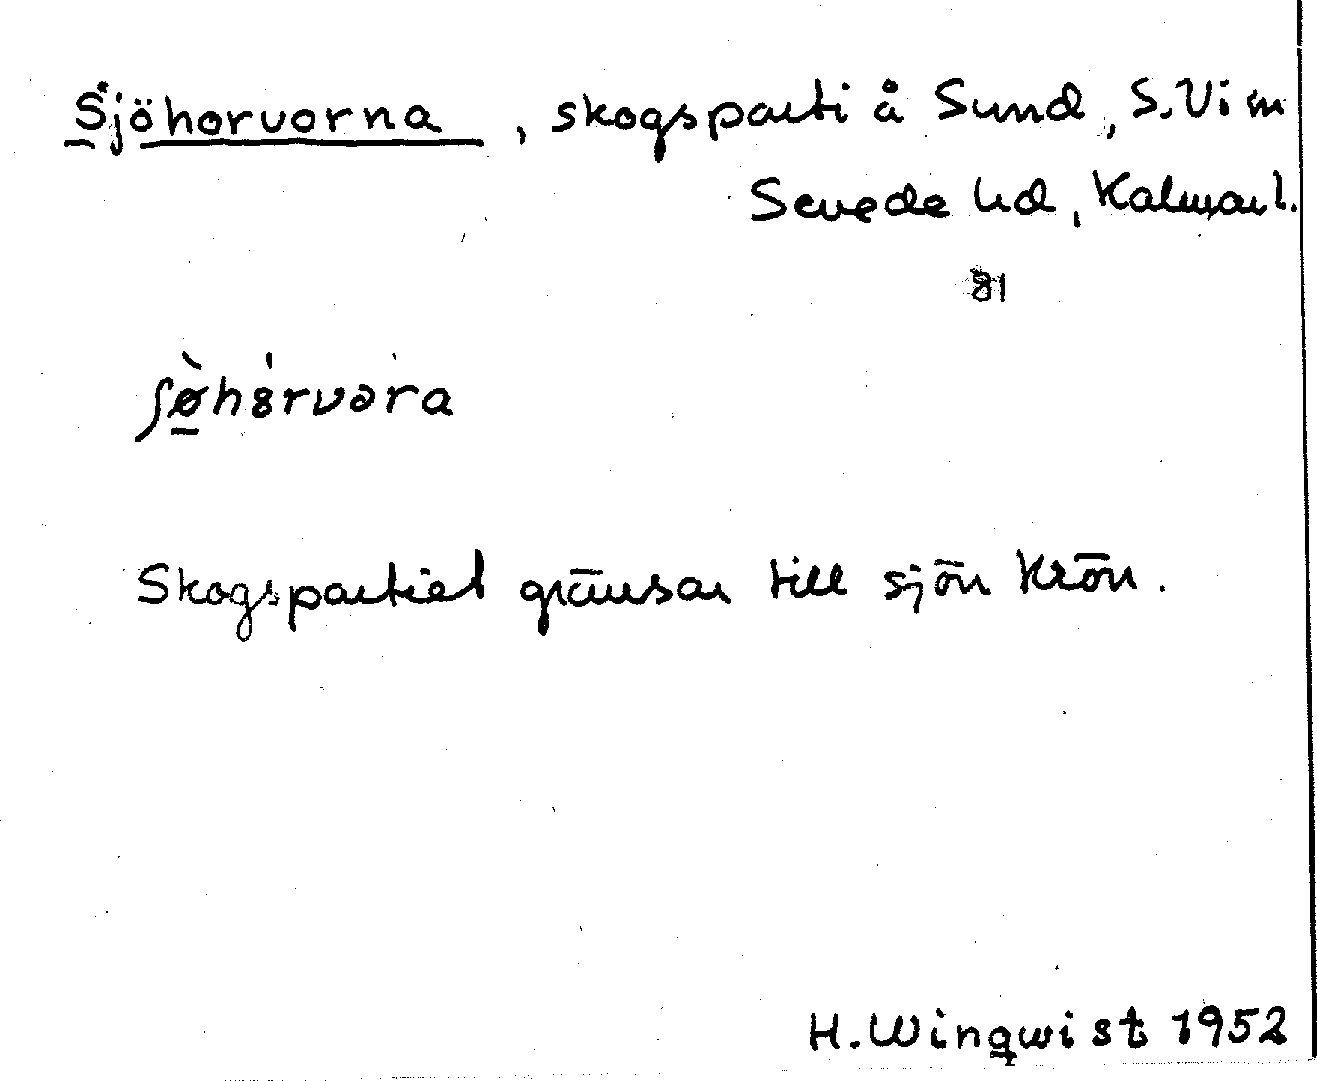 Sjöhorvorna, skogsparti å Sund, S.Vi sn
Sevede hd, Kalmar l.
81
ʃø̀hȯ́rvəra
Skogspartiet gränsar till sjön Krön.
H. Winqwist 1952